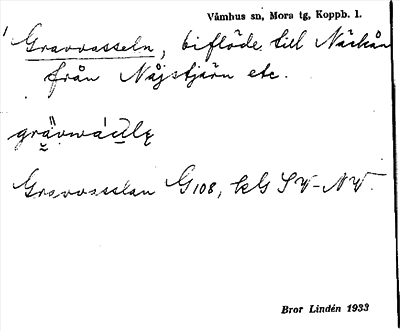 Våmhus sn, Mora tg, Koppb. l.
1 Gravvasseln, biflöde till Näckån
från Nåjstjärn etc.
Gravasslan G108, kG SV-NV.
Bror Lindén 1933